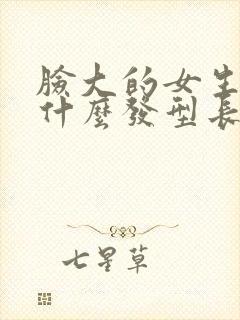 臉大的女生
什麼發型長
七星草